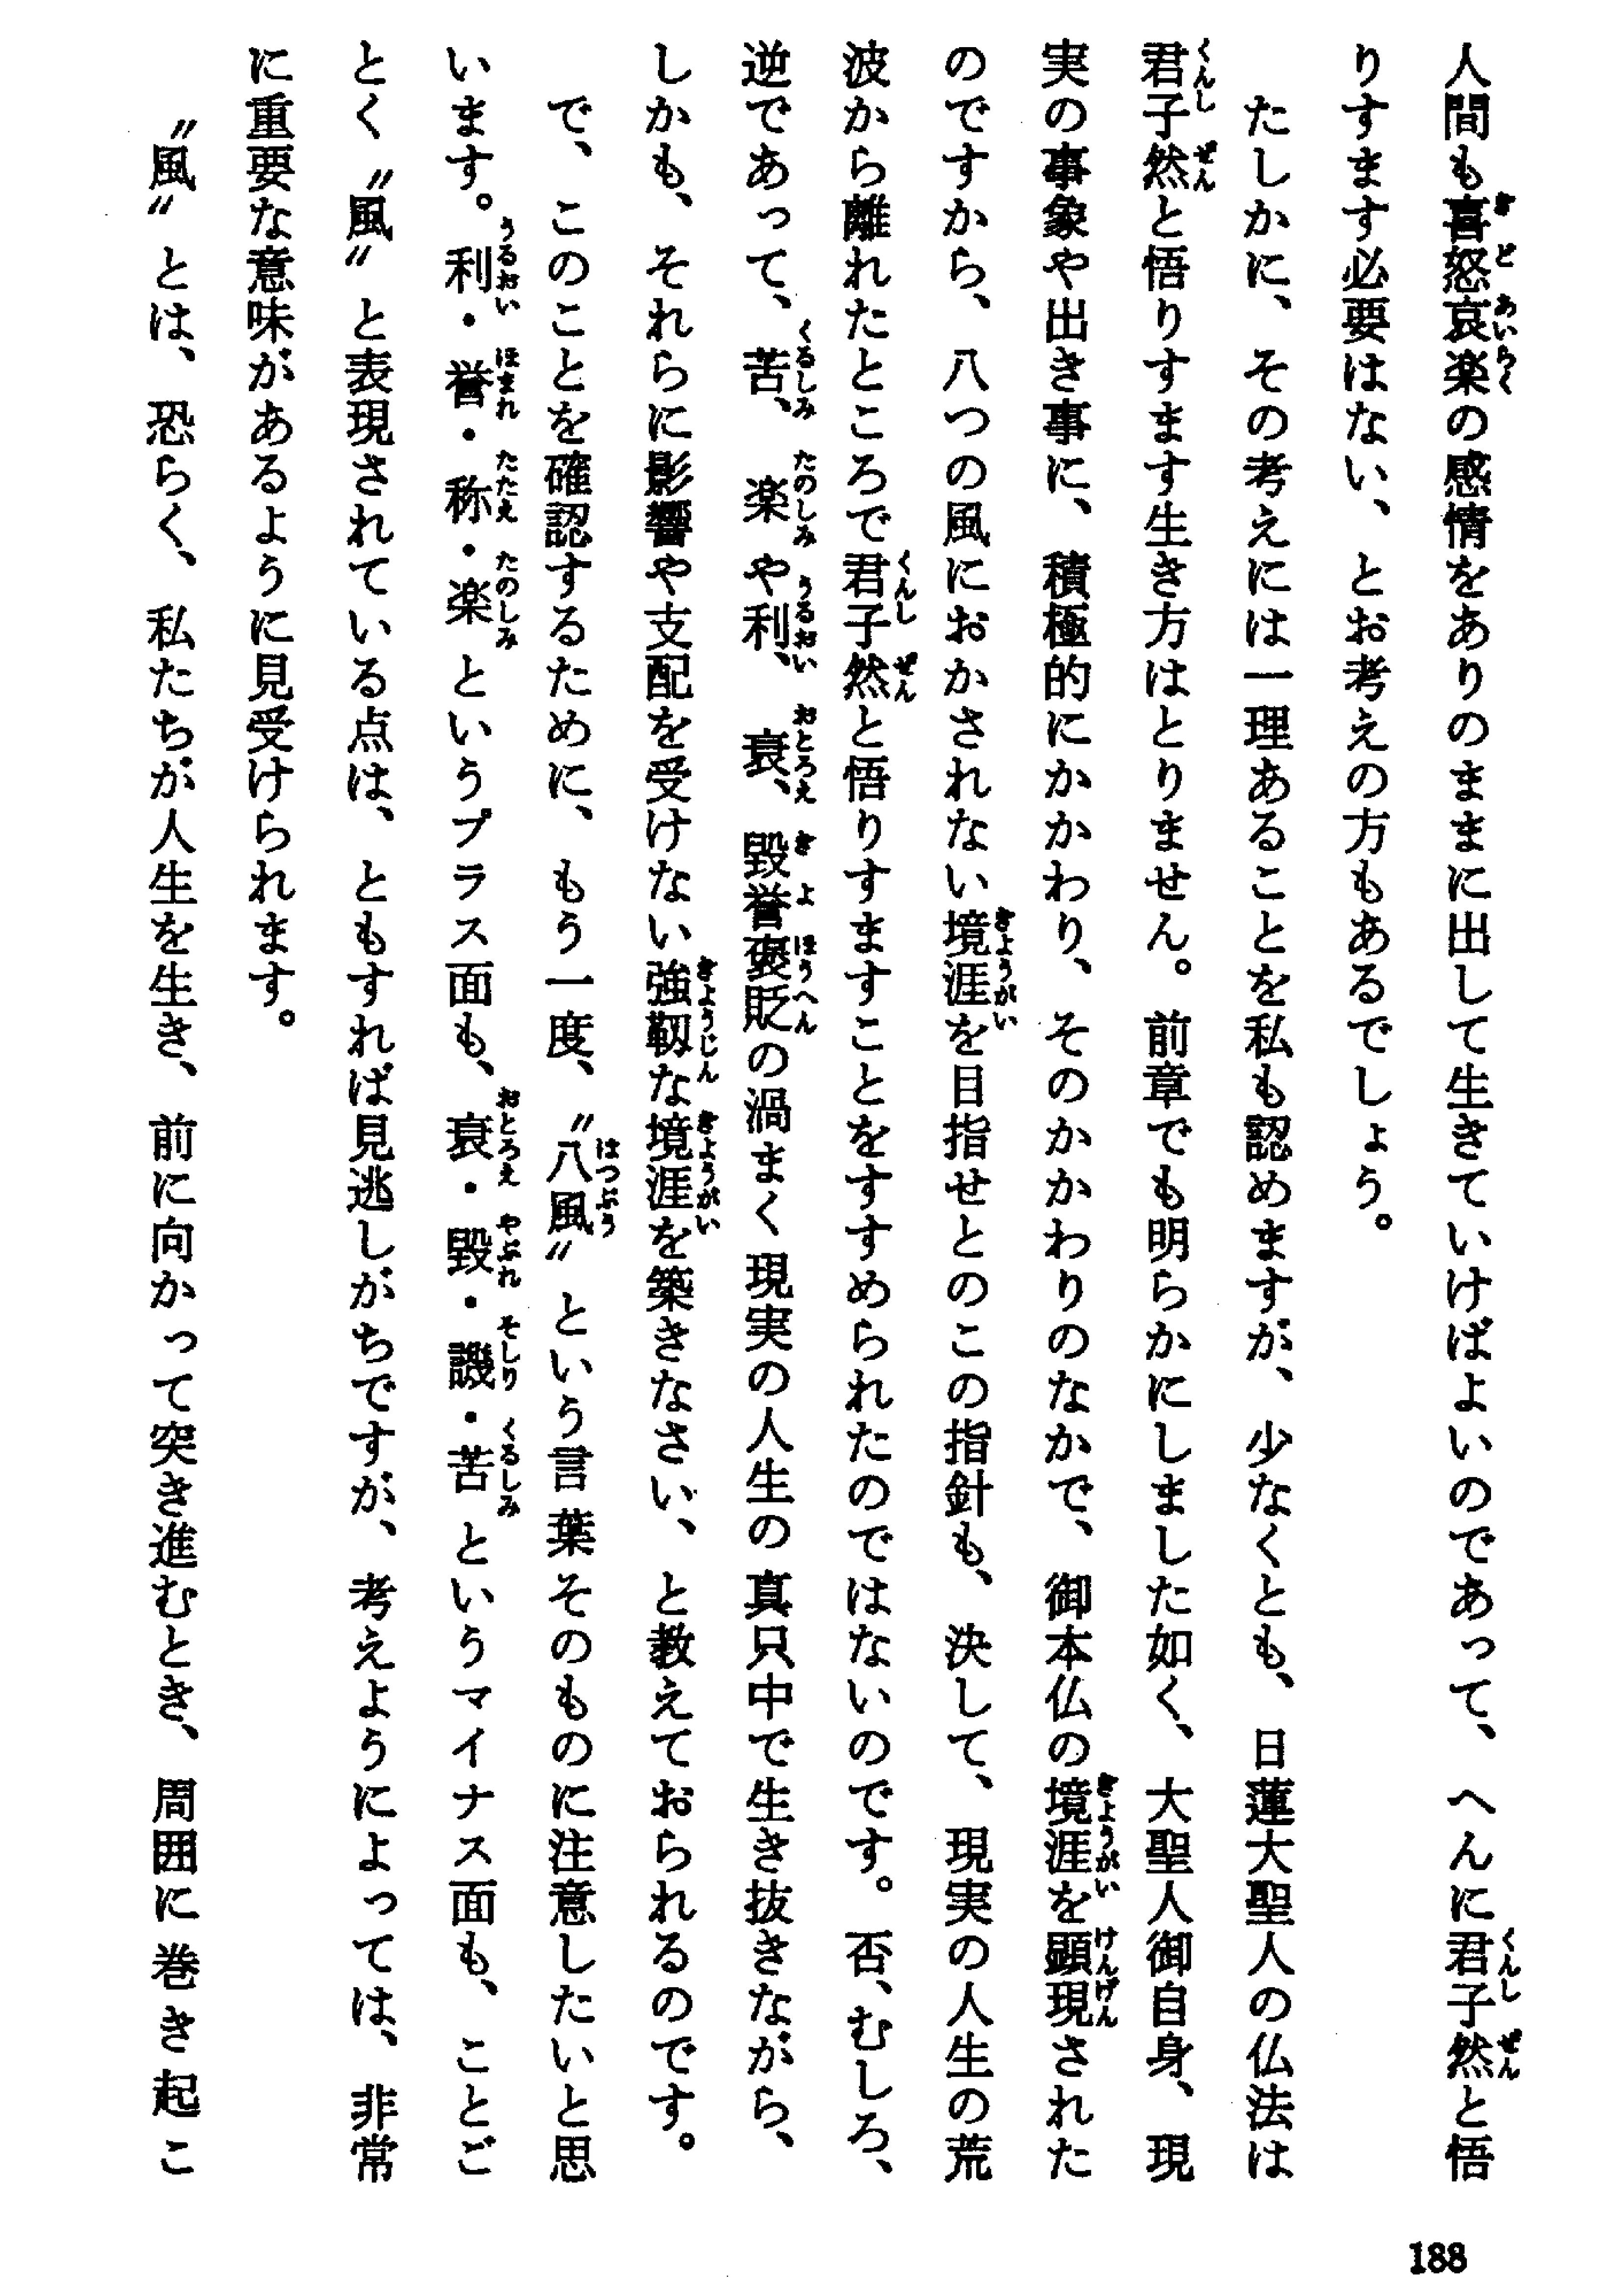 人間も喜怒哀楽の感情をありのままに出して生きていけばよいのであって、へんに君子然と悟
りすます必要はない、とお考えの方もあるでしょう。
たしかに、その考えには一理あることを私も認めますが、少なくとも、日蓮大聖人の仏法は
君子然と悟りすます生き方はとりません。前章でも明らかにしました如く、大聖人御自身、現
実の事象や出き事に、積極的にかかわり、そのかかわりのなかで、御本仏の境涯を顕現された
のですから、八つの風におかされない境涯を目指せとのこの指針も、決して、現実の人生の荒
波から離れたところで君子然と悟りすますことをすすめられたのではないのです。否、むしろ、
逆であって、苦、楽や利、衰、毀誉褒貶の渦まく現実の人生の真只中で生き抜きながら、
しかも、それらに影響や支配を受けない強靱な境涯を築きなさい、と教えておられるのです。
で、このことを確認するために、もう一度、〝八風〟という言葉そのものに注意したいと思
います。利・誉・称・楽というプラス面も、衰・毀・譏・苦というマイナス面も、ことご
とく〝風〟と表現されている点は、ともすれば見逃しがちですが、考えようによっては、非常
に重要な意味があるように見受けられます。
〝風〟とは、恐らく、私たちが人生を生き、前に向かって突き進むとき、周囲に巻き起こ
188